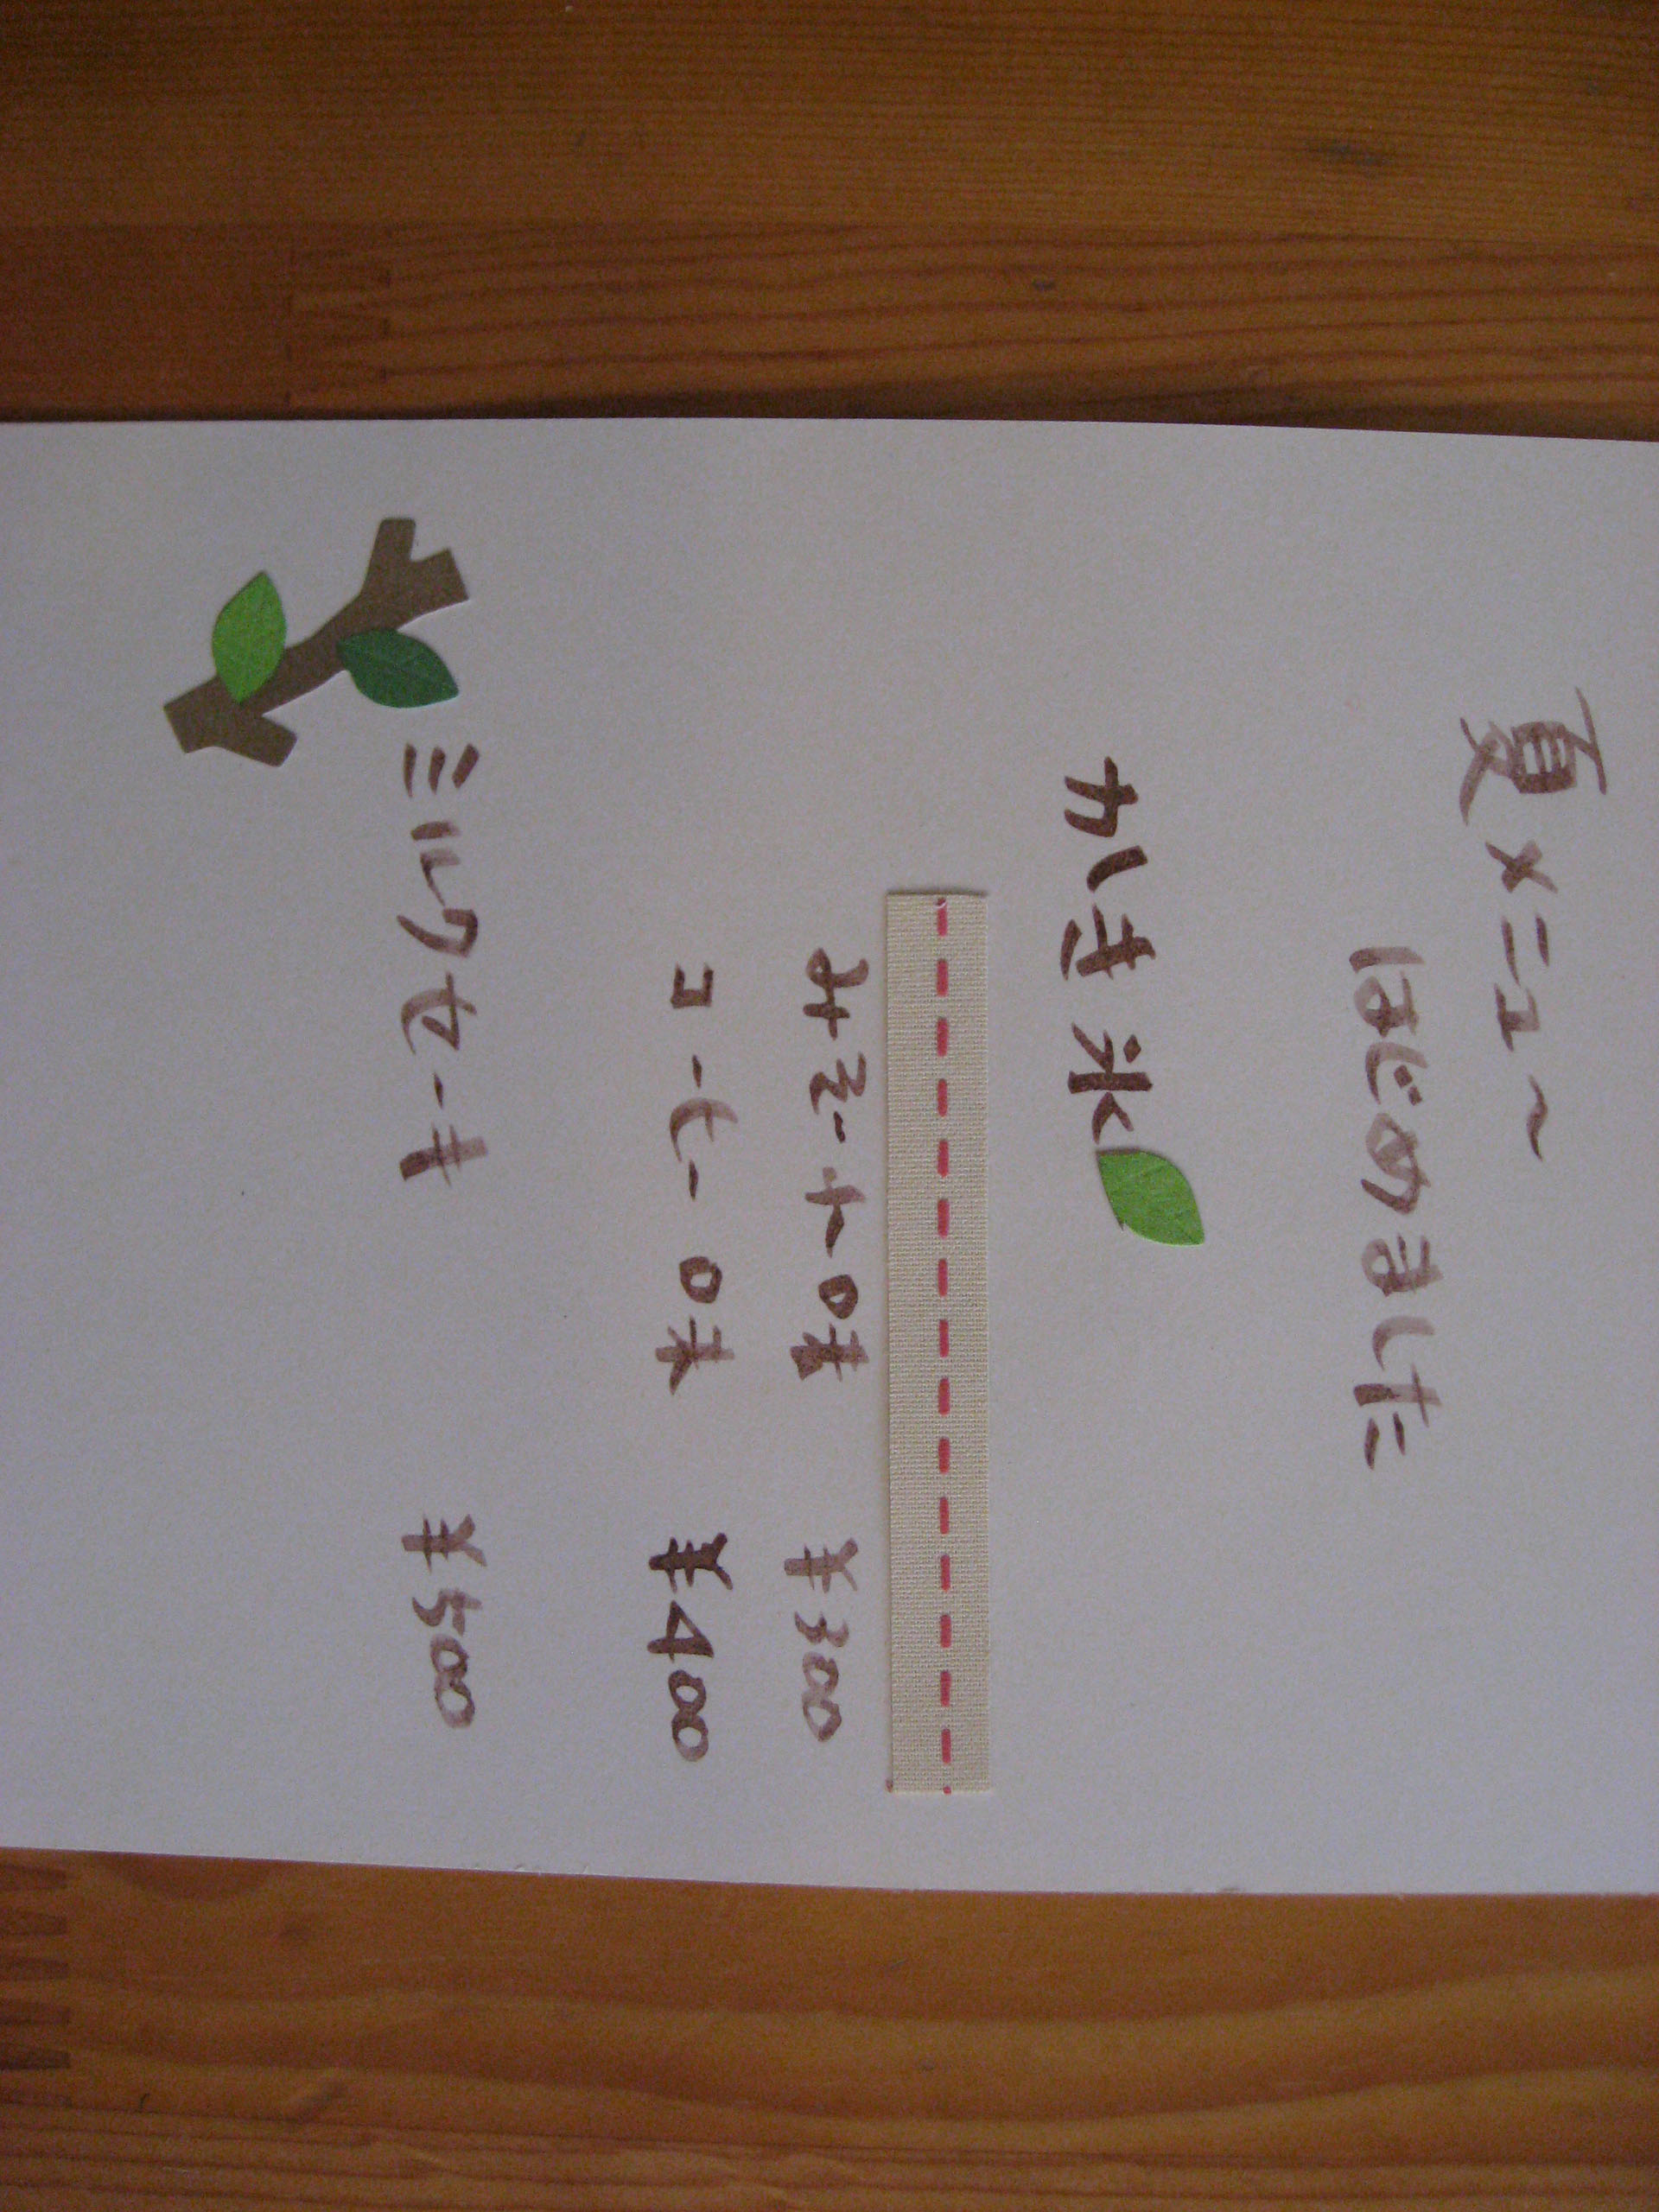 夏メニュ～
はじめました
かき氷
味 ¥300
コーヒー味 ¥400
ミルクセーキ ¥500